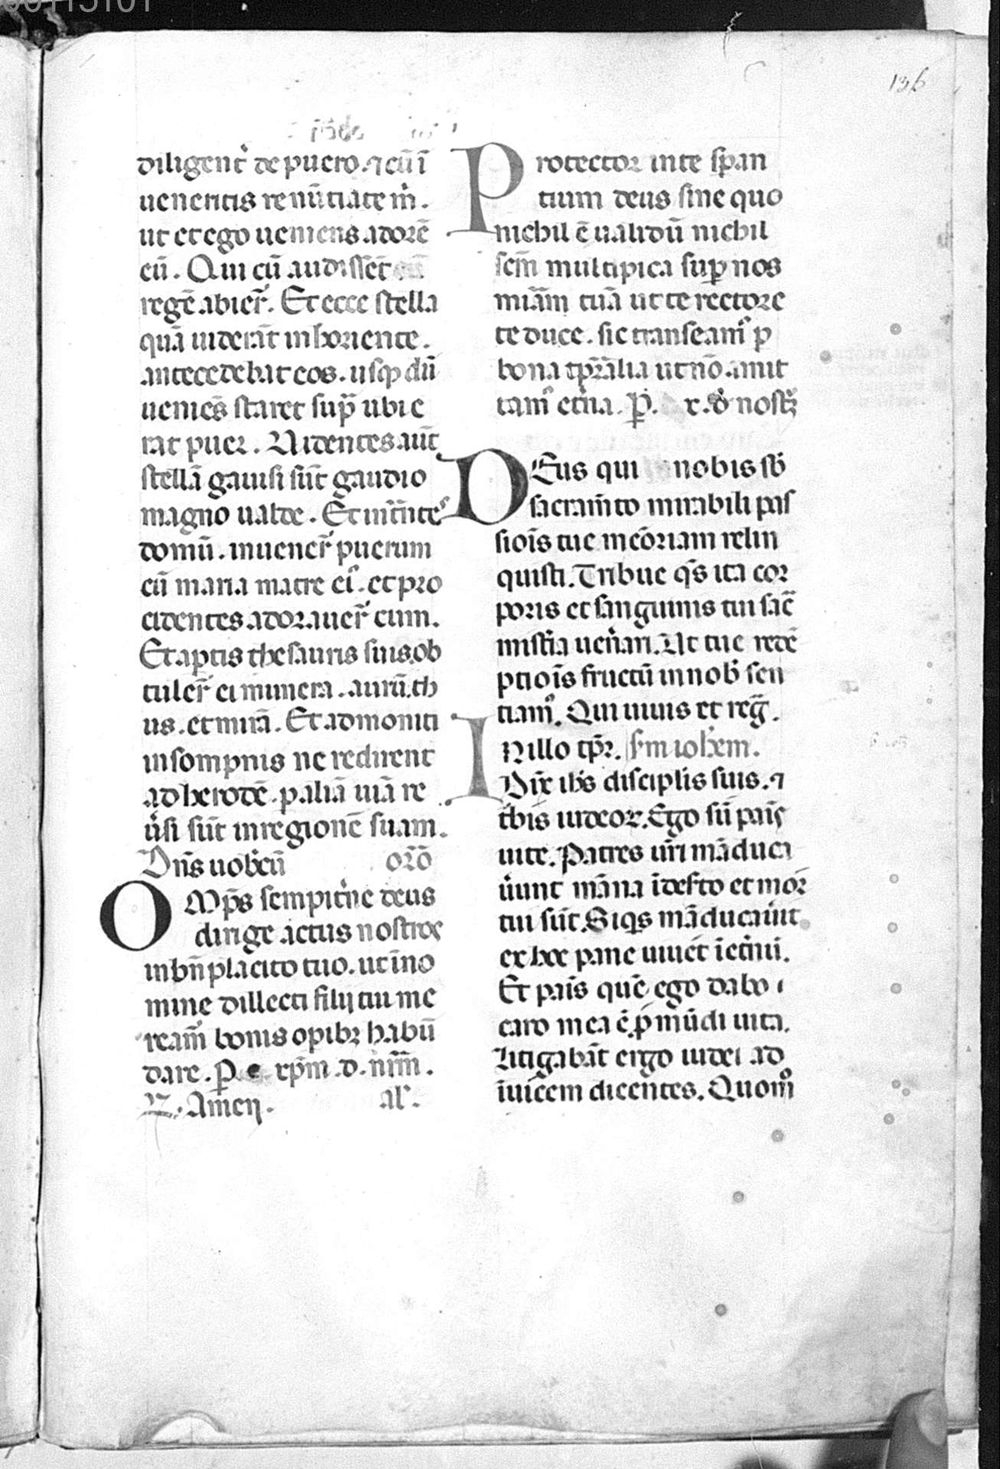 136
diligent̉ de puero. ⁊ cū ī
uenentis renūtiate m̉.
ut et ego ueniens adorē
eū. Qui cū audissēt
regē abier̉. Et ecce stella
quā uiderāt in horiente.
antecedebat eos. usqꝫ dū
ueniēs staret sup̄ ubi e
rat puer. Uidentes aūt
stellā gauisi sūt gaudio
magno ualde. Et int̄nteˢ
domū. inuener̉ puerum
cū maria matre ei᷒. et pro
cidentes adorauer̉ eum.
Et aptis thesauris suis. ob
tuler̉ ei munera. aurū. th
us. et mirā. Et admoniti
in sompnis ne redirent
ad herodē. p aliā uiā re
ūsi sūt in regionē suam.
Dn̄s uob̄cū orō
OMp̄s sempit̉ne deus
dirige actus nostros
in bn̄placito tuo. ut ī no
mine dillecti filij tui me
ream᷒ bonis opibꝫ habū
dare. P. e xp̄m .d. nr̄m.
R. Amen. al̉.
Protector in te sp̄an
tium deus sine quo
nichil ē ualidū nichil
scm̄ multipica sup̄ nos
miām tuā ut te rectore
te duce. sic transeam᷒ p
bona tp̄ralia ut nō amit
tam᷒ et̉na. P. x. d̄ nostꝝ
DEus qui nobis sb̄
sacram̄to mirabili pas
siōis tue meōriam relin
quisti. Tribue qs̄ ita cor
poris et sanguinis tui sac̄
mist̉ia uen̉ari. Ut tue redē
ptiōis fructū in nob̄ sen
tiam᷒. Qui uiuis et reḡ.
INillo tp̄r. sm̄ ioh̄em.
Dix̄ ih̄s disciplis suis. ⁊
tbis iudeoꝝ. Ego sū pais̄
uite. Patres ur̄i māduca
ūunt māna ī desto et mor
tui sūt. Siqs māducaūit
ex hoc pane uiuet ī et̉nū.
Et pais̄ quē ego dabo
caro mea ē. p mūdi uita.
Litigabāt ergo iudei ad
īuicem dicentes. Quom̊